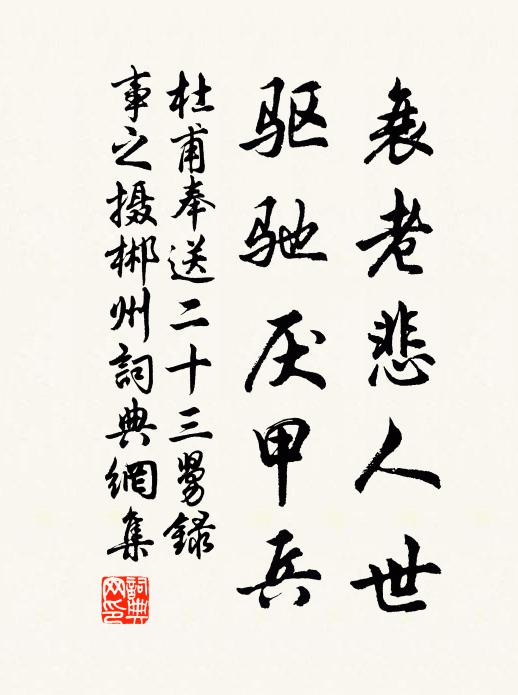 衰老悲人世
驱驰厌甲兵
杜甫奉送二十三舅録
事之摄郴州詞典網集
詞典
网印